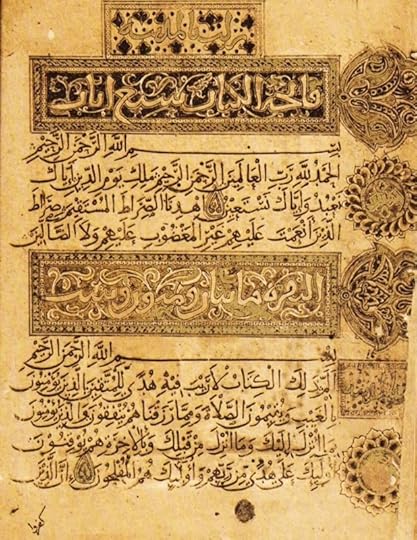 فاتحة الكتاب سبع ايات
بسم الله الرحمن الرحيم
الحمد لله رب العالمين الرحمن الرحيم ملك يوم الدين اياك
نعبد واياك نستعين اهدنا الصراط المستقيم صراط
الذين انعمت عليهم غير المغضوب عليهم ولا الضالين
البقرة مايتان وثمانون وست
بسم الله الرحمن الرحيم
الم ذلك الكتاب لا ريب فيه هدى للمتقين الذين يؤمنون
بالغيب ويقيمون الصلاة ومما رزقناهم ينفقون والذين يؤمنون
بما انزل اليك وما انزل من قبلك وبالاخرة هم يوقنون
اولئك على هدى من ربهم واولئك هم المفلحون ان الذين